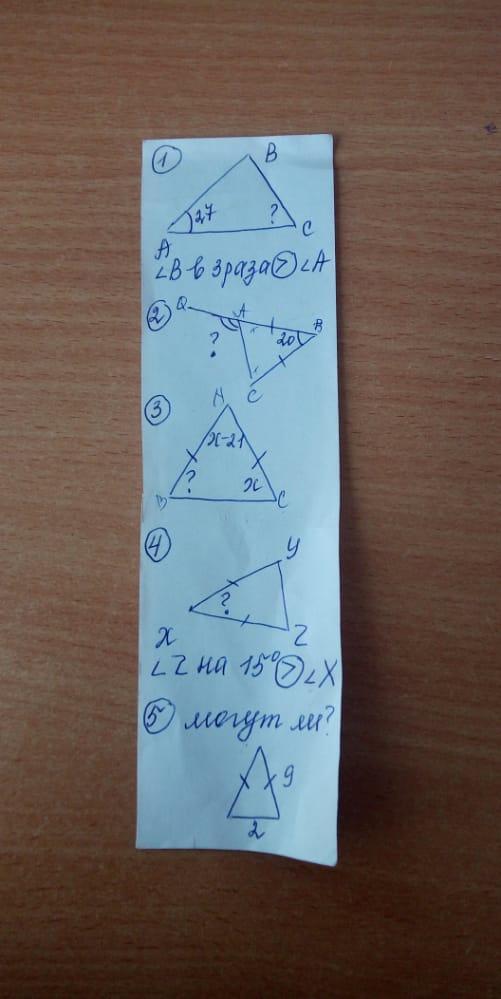 1
B
27 ?
A C
∠B в 3 раза > ∠A
2 Q A B
20
?
C
3 A
x-21
? x
B C
4 У
?
X Z
∠Z на 15° > ∠X
5 могут ли?
9
2